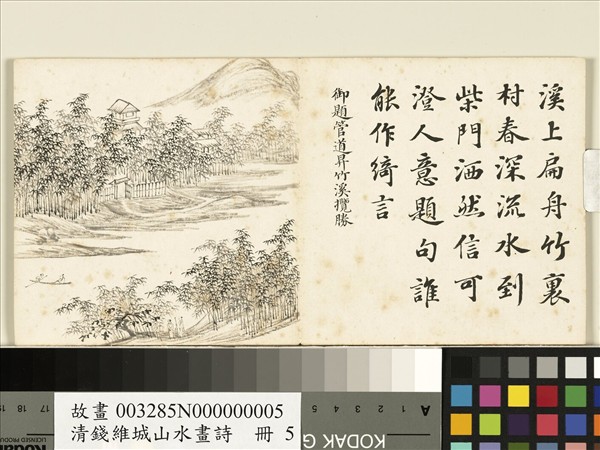 溪上扁舟竹裏
村春深流水到
柴門洒然信可
澄人意題句誰
能作綺言
御題管道昇竹溪攬勝
故畫 003285N000000005
清錢維城山水畫詩 冊 5
KODAK G
LICENSED PRODU
A 1 2 3 4 5
17 18 19